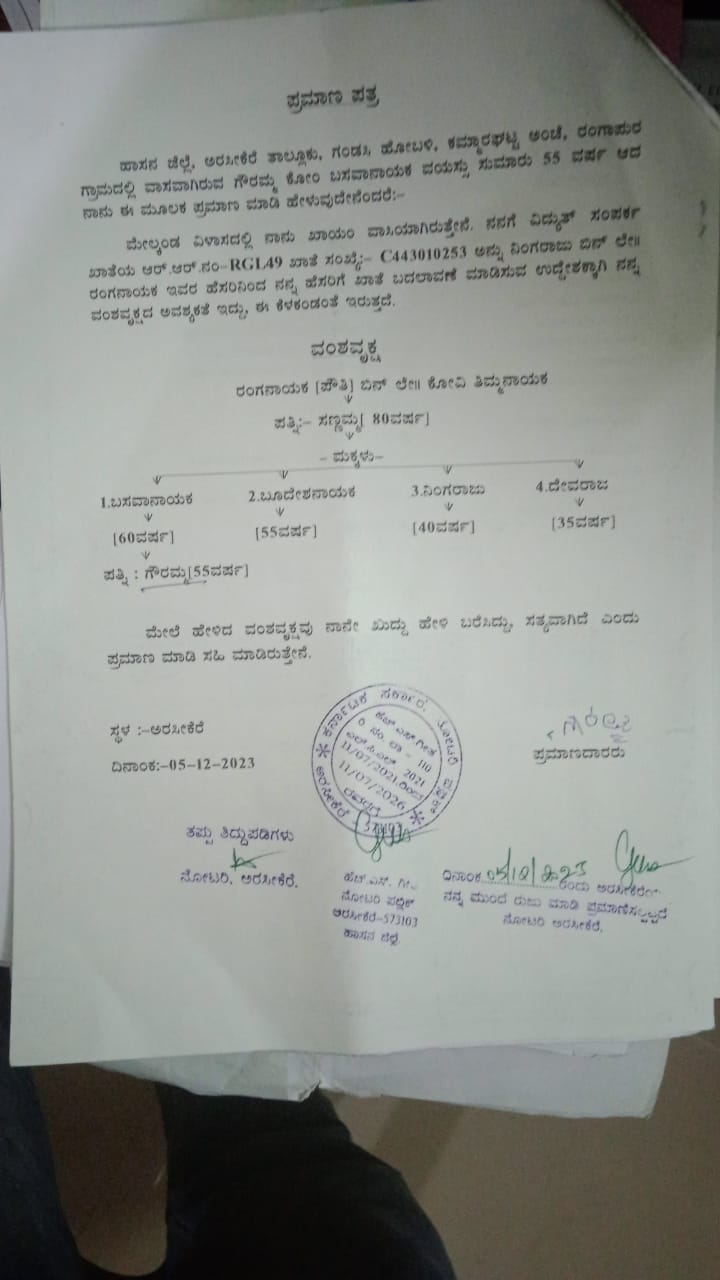 ಪ್ರಮಾಣ ಪತ್ರ
ಹಾಸನ ಜಿಲ್ಲೆ, ಅರಸೀಕೆರೆ ತಾಲ್ಲೂಕು, ಗಂಡಸಿ ಹೋಬಳಿ, ಕಮ್ಮಾರಘಟ್ಟ ಅಂಚೆ, ರಂಗಾಪುರ
ಗ್ರಾಮದಲ್ಲಿ ವಾಸವಾಗಿರುವ ಗೌರಮ್ಮ ಕೋಂ ಬಸವಾನಾಯಕ ವಯಸ್ಸು ಸುಮಾರು 55 ವರ್ಷ ಆದ
ನಾನು ಈ ಮೂಲಕ ಪ್ರಮಾಣ ಮಾಡಿ ಹೇಳುವುದೇನೆಂದರೆ:-
ಮೇಲ್ಕಂಡ ವಿಳಾಸದಲ್ಲಿ ನಾನು ಖಾಯಂ ವಾಸಿಯಾಗಿರುತ್ತೇನೆ. ನನಗೆ ವಿದ್ಯುತ್ ಸಂಪರ್ಕ
ಖಾತೆಯ ಆರ್.ಆರ್.ನಂ-RGL49 ಖಾತೆ ಸಂಖ್ಯೆ:- C443010253 ಅನ್ನು ನಿಂಗರಾಜು ಬಿನ್ ಲೇ||
ರಂಗನಾಯಕ ಇವರ ಹೆಸರಿನಿಂದ ನನ್ನ ಹೆಸರಿಗೆ ಖಾತೆ ಬದಲಾವಣೆ ಮಾಡಿಸುವ ಉದ್ದೇಶಕ್ಕಾಗಿ ನನ್ನ
ವಂಶವೃಕ್ಷದ ಅವಶ್ಯಕತೆ ಇದ್ದು, ಈ ಕೆಳಕಂಡಂತೆ ಇರುತ್ತದೆ.
ವಂಶವೃಕ್ಷ
ರಂಗನಾಯಕ [ಪೌತಿ] ಬಿನ್ ಲೇ|| ಕೋವಿ ತಿಮ್ಮನಾಯಕ
ಪತ್ನಿ:- ಸಣ್ಣಮ್ಮ[ 80ವರ್ಷ]
- ಮಕ್ಕಳು-
1.ಬಸವಾನಾಯಕ 2.ಬೂದೇಶನಾಯಕ 3.ನಿಂಗರಾಜು 4.ದೇವರಾಜ
[60ವರ್ಷ] [55ವರ್ಷ] [40ವರ್ಷ] [35ವರ್ಷ]
ಪತ್ನಿ : ಗೌರಮ್ಮ[55ವರ್ಷ]
ಮೇಲೆ ಹೇಳಿದ ವಂಶವೃಕ್ಷವು ನಾನೇ ಖುದ್ದು ಹೇಳಿ ಬರೆಸಿದ್ದು, ಸತ್ಯವಾಗಿದೆ ಎಂದು
ಪ್ರಮಾಣ ಮಾಡಿ ಸಹಿ ಮಾಡಿರುತ್ತೇನೆ.
ಸ್ಥಳ :-ಅರಸೀಕೆರೆ
ದಿನಾಂಕ:-05-12-2023
ಪ್ರಮಾಣದಾರರು
ಕರ್ನಾಟಕ ಸರ್ಕಾರ.
ಅರಸೀಕೆರೆ
11/07/2021
11/07/2026
ತಪ್ಪು ತಿದ್ದುಪಡಿಗಳು
ನೋಟರಿ, ಅರಸೀಕೆರೆ.
ಹೆಚ್.ಎಸ್.
ನೋಟರಿ ಪಬ್ಲಿಕ್
ಅರಸೀಕೆರೆ-573103
ಹಾಸನ ಜಿಲ್ಲೆ.
ದಿನಾಂಕ 05/12/2023 ರಂದು
ನನ್ನ ಮುಂದೆ ರುಜು ಮಾಡಿ ಪ್ರಮಾಣಿಸಲ್ಪಟ್ಟಿದೆ
ನೋಟರಿ ಅರಸೀಕೆರೆ.